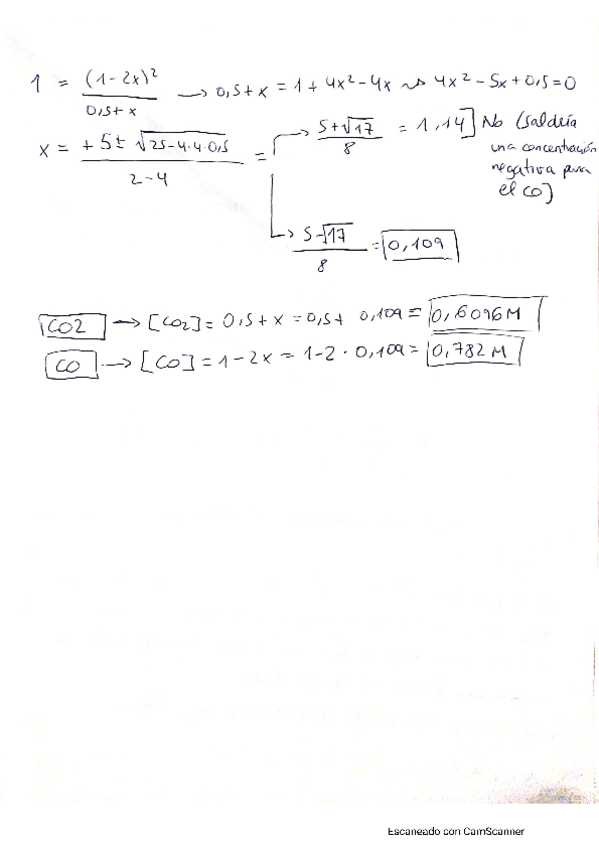 1 = (1-2x)² / 0,5+x → 0,5+x = 1+4x²-4x ⇝ 4x²-5x+0,5=0
x = +5± √25-4·4·0,5 / 2-4 =
→ 5+√17 / 8 = 1,14] No (saldría
una concentración
negativa para
el CO)
→ 5-√17 / 8 = 0,109
CO2 → [CO2] = 0,5+x = 0,5+ 0,109 = 0,6096M
CO → [CO] = 1-2x = 1-2·0,109 = 0,782 M
Escaneado con CamScanner